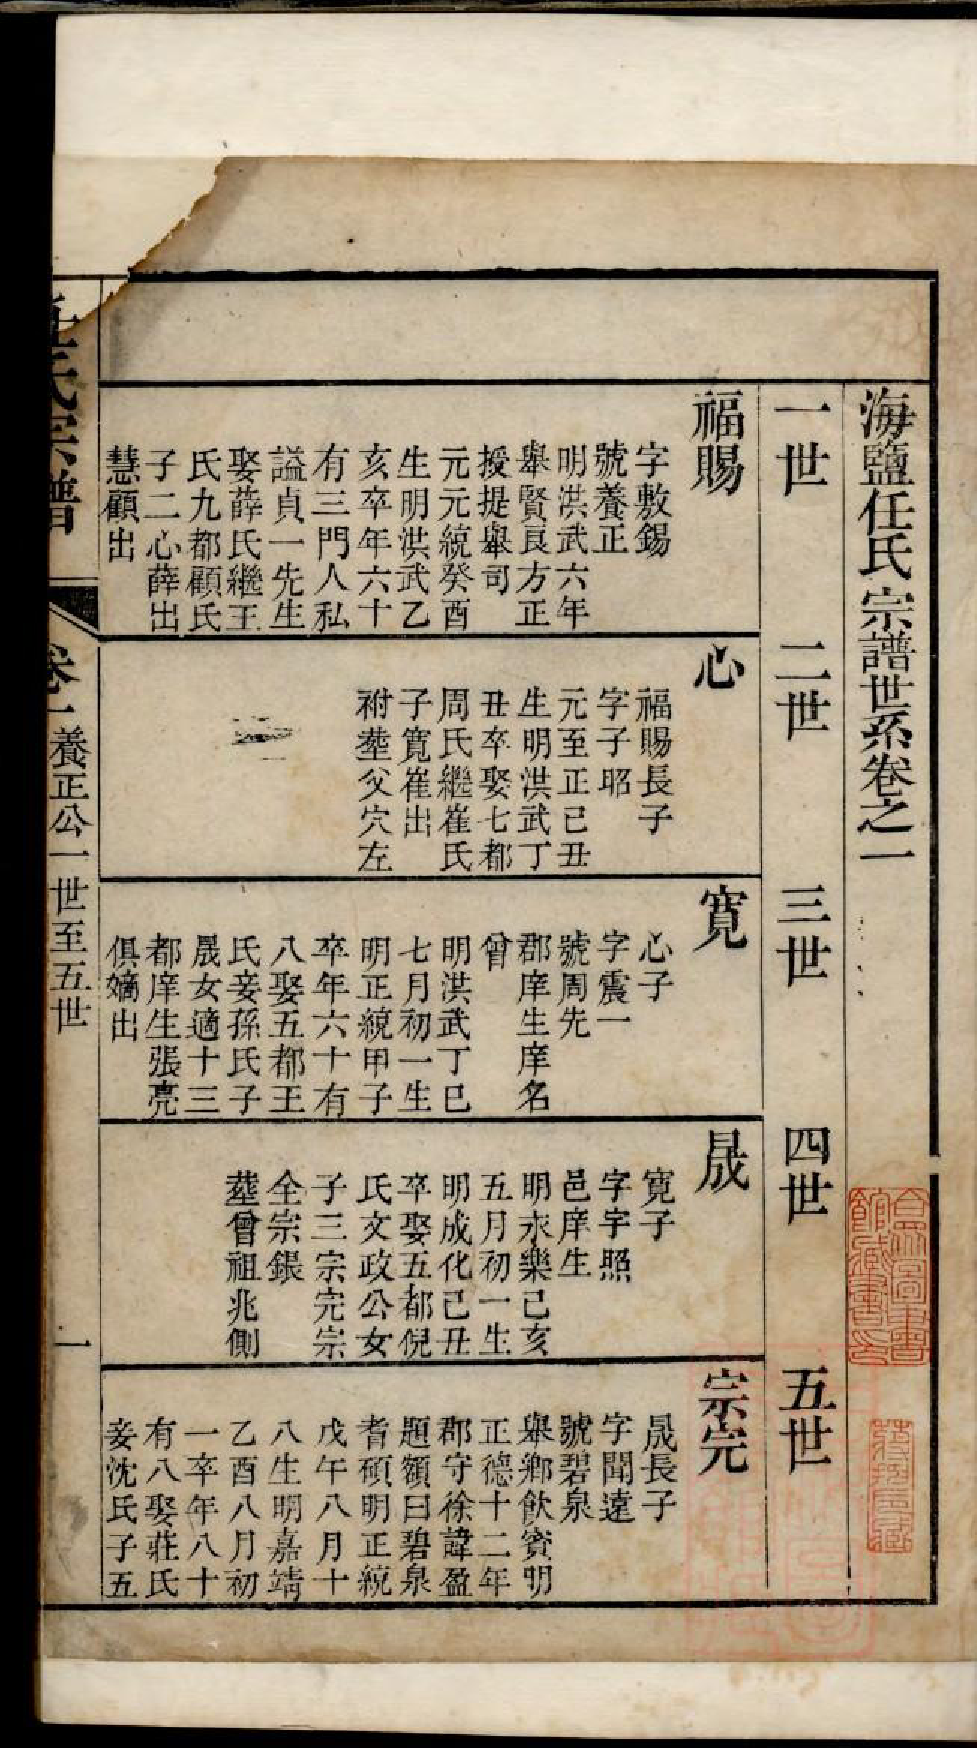 海鹽任氏宗譜世系卷之一
一世
二世
三世
四世
五世
福賜
字敷錫
號養正
明洪武六年
舉賢良方正
授提舉司
元元統癸酉
生明洪武乙
亥卒年六十
有三門人私
謚貞一先生
娶薛氏繼王
氏九都顧氏
子二心薛出
慧顧出
心
福賜長子
字子昭
元至正己丑
生明洪武丁
丑卒娶七都
周氏繼崔氏
子寬崔出
祔塟父穴左
寬
心子
字震一
號周先
郡庠生庠名
曾
明洪武丁巳
七月初一生
明正統甲子
卒年六十有
八娶五都王
氏妾孫氏子
晟女適十三
都庠生張亮
俱嫡出
晟
寬子
字宇照
邑庠生
明永樂己亥
五月初一生
明成化己丑
卒娶五都倪
氏文政公女
子三宗完宗
全宗鋹
塟曾祖兆側
宗完
晟長子
字聞遠
號碧泉
舉鄉飲賓明
正德十二年
郡守徐諱盈
題額曰碧泉
耆碩明正統
戊午八月十
八生明嘉靖
乙酉八月初
一卒年八十
有八娶莊氏
妾沈氏子五
任氏宗譜
卷一
養正公一世至五世
一